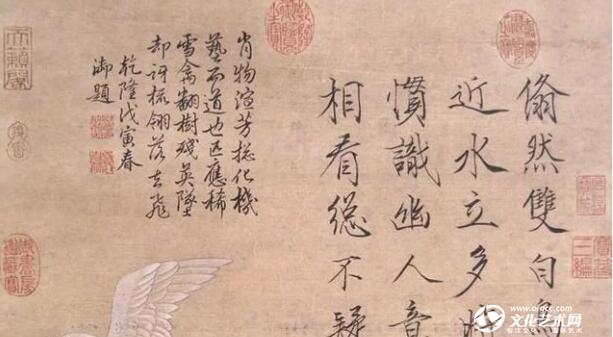 翛然雙白鳥
近水立多時
慣識幽人意
相看總不疑
肖物渲芳揔化機
藝而道也匹應稀
雪禽翻樹殘英墜
却訝梳翎落去飛
乾隆戊寅春
御題
天籟閣
文化艺术网